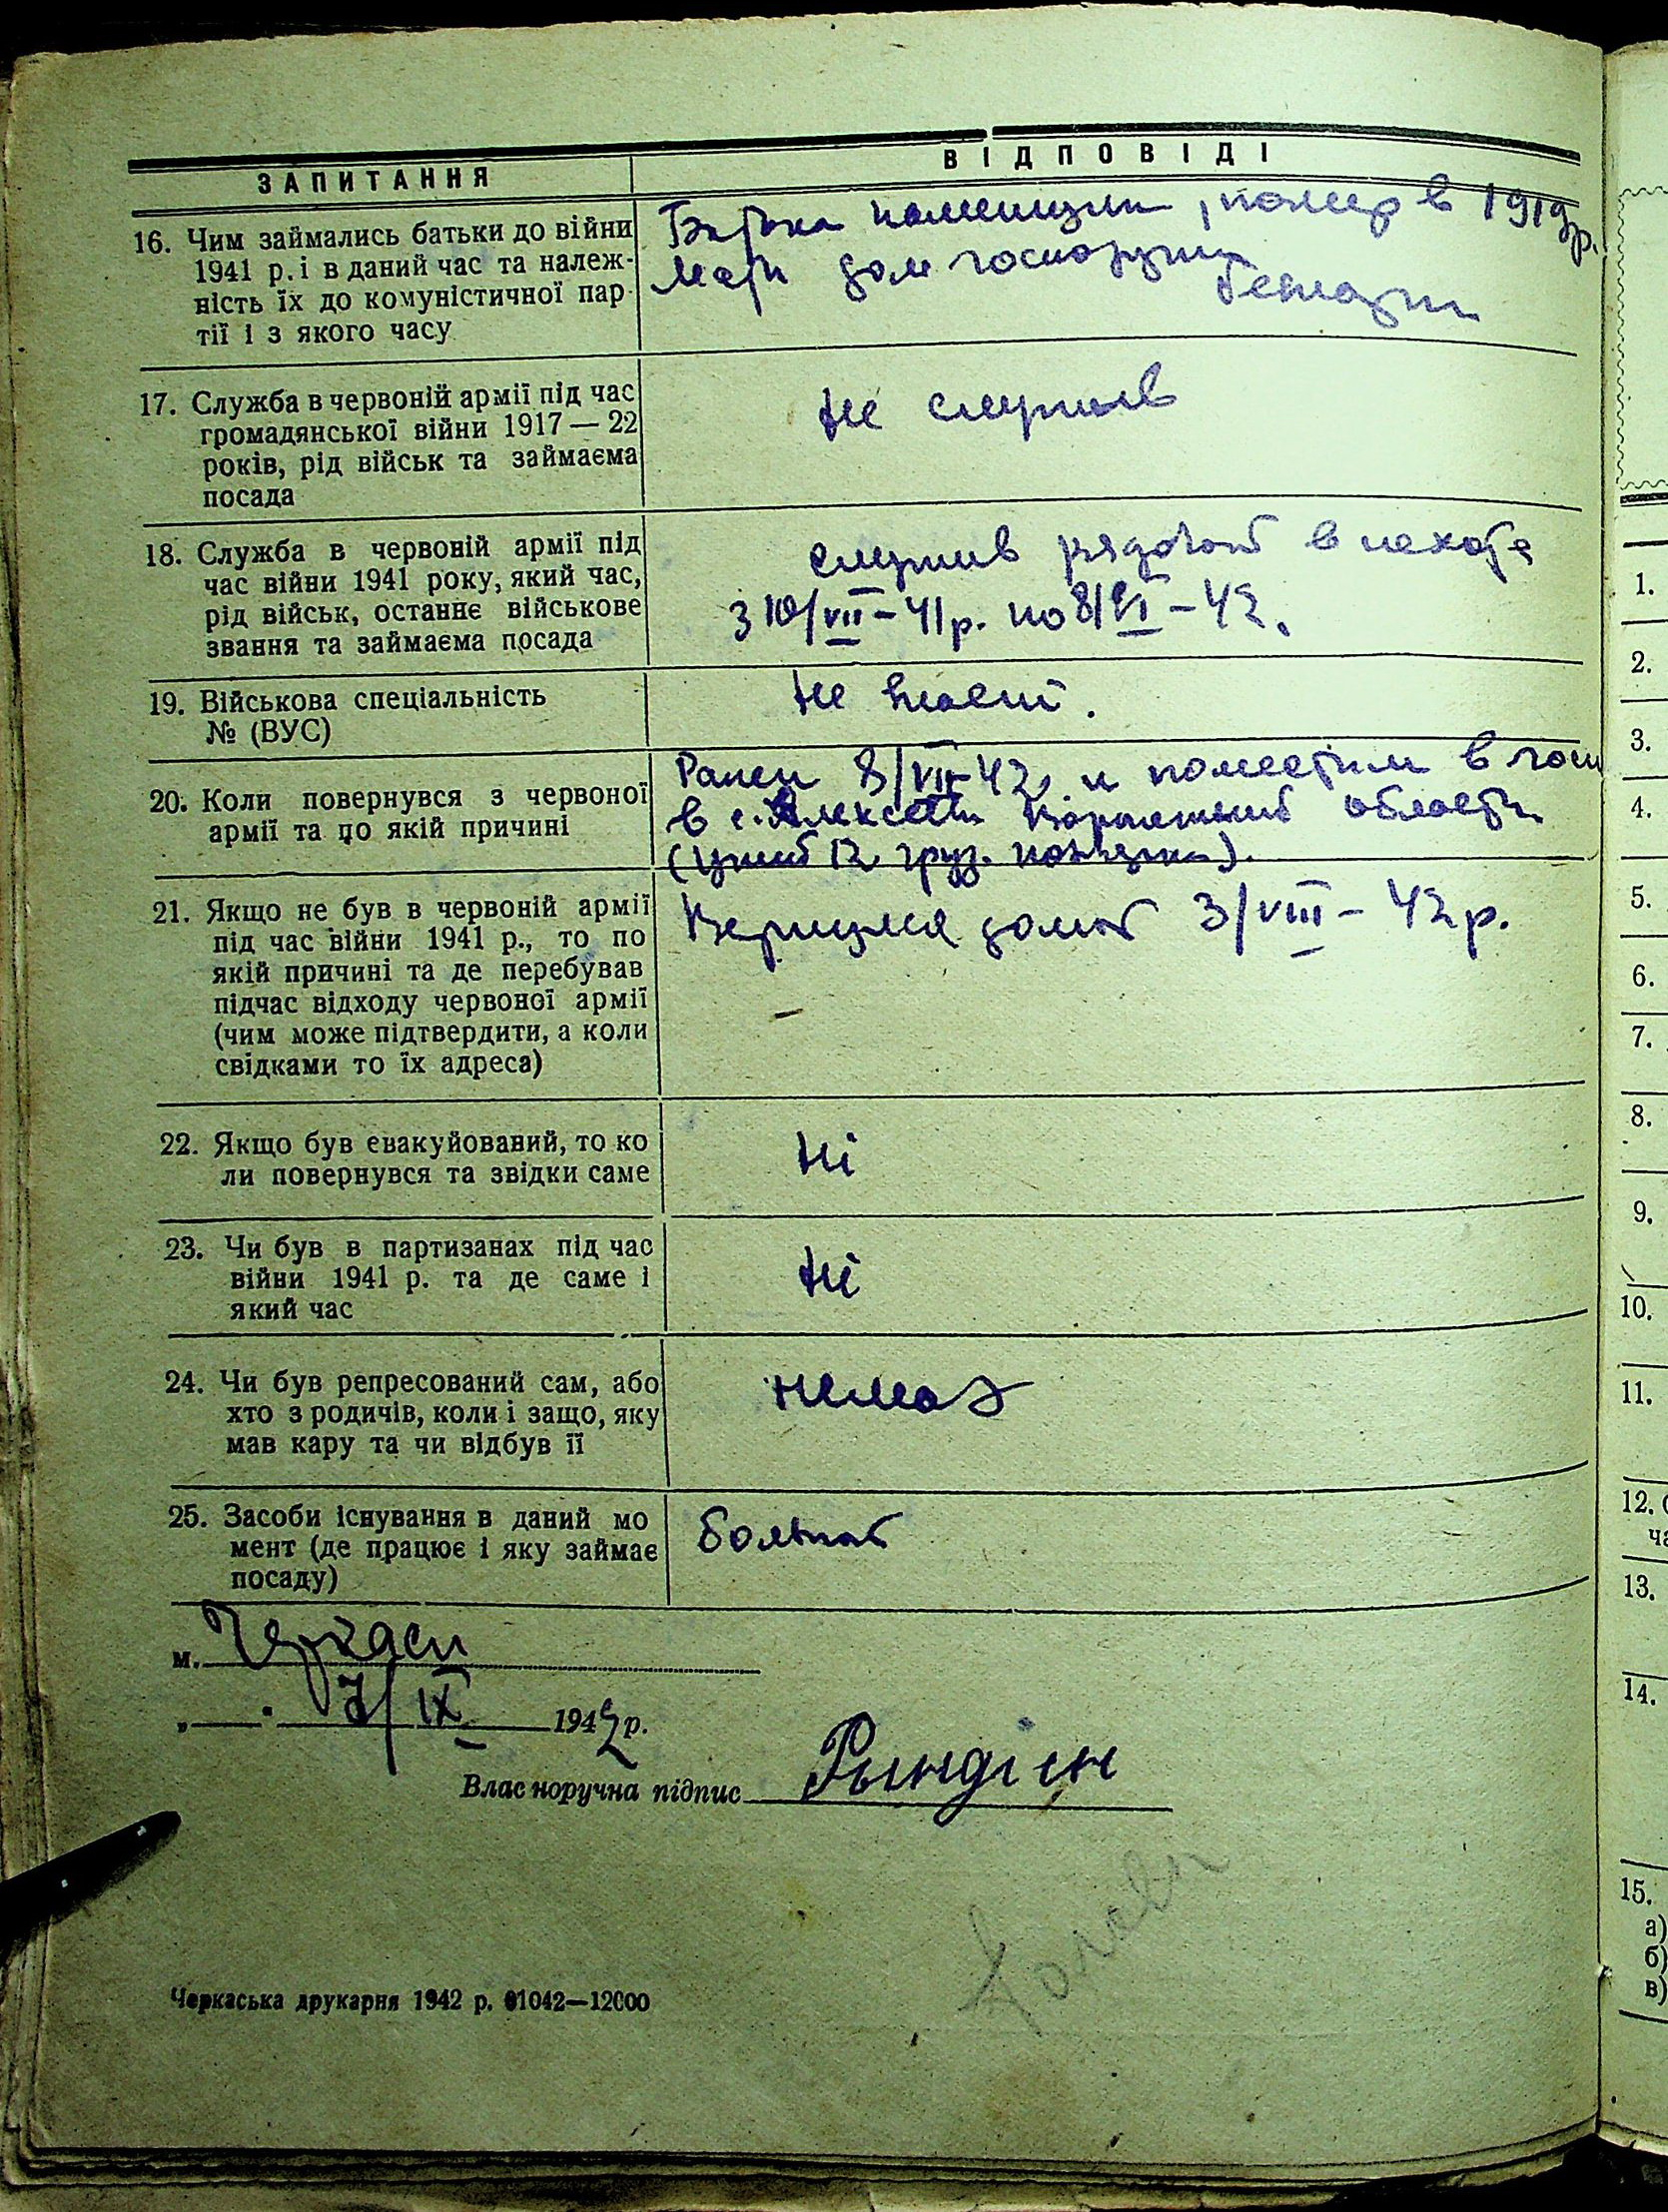 ЗАПИТАННЯ
ВІДПОВІДІ
16. Чим займались батьки до війни
1941 р. і в даний час та належ-
ність їх до комуністичної пар-
тії і з якого часу
Батька помещик, помер в 1919 р.
Мати дом господарка
17. Служба в червоній армії під час
громадянської війни 1917 — 22
років, рід військ та займаєма
посада
не служив
18. Служба в червоній армії під
час війни 1941 року, який час,
рід військ, останнє військове
звання та займаєма посада
служив рядовой в пехоте
з 10/VII – 41 р. по 8/VI – 42.
19. Військова спеціальність
№ (ВУС)
не имеет.
20. Коли повернувся з червоної
армії та по якій причині
Ранен 8/VII–42 и поместили в госп
в с. Воронежской области
груз.
21. Якщо не був в червоній армії
під час війни 1941 р., то по
якій причині та де перебував
підчас відходу червоної армії
(чим може підтвердити, а коли
свідками то їх адреса)
Вернулся домой 3/VIII – 42 р.
–
22. Якщо був евакуйований, то ко
ли повернувся та звідки саме
Ні
23. Чи був в партизанах під час
війни 1941 р. та де саме і
який час
Ні
24. Чи був репресований сам, або
хто з родичів, коли і защо, яку
мав кару та чи відбув її
немає
25. Засоби існування в даний мо
мент (де працює і яку займає
посаду)
больной
м. Черкаси
„ “ 7/IX 1942 р.
Власноручна підпис Рындін
Черкаська друкарня 1942 р. 01042—12000
1.
2.
3.
4.
5.
6.
7.
8.
9.
10.
11.
12.
13.
14.
15.
а)
б)
в)